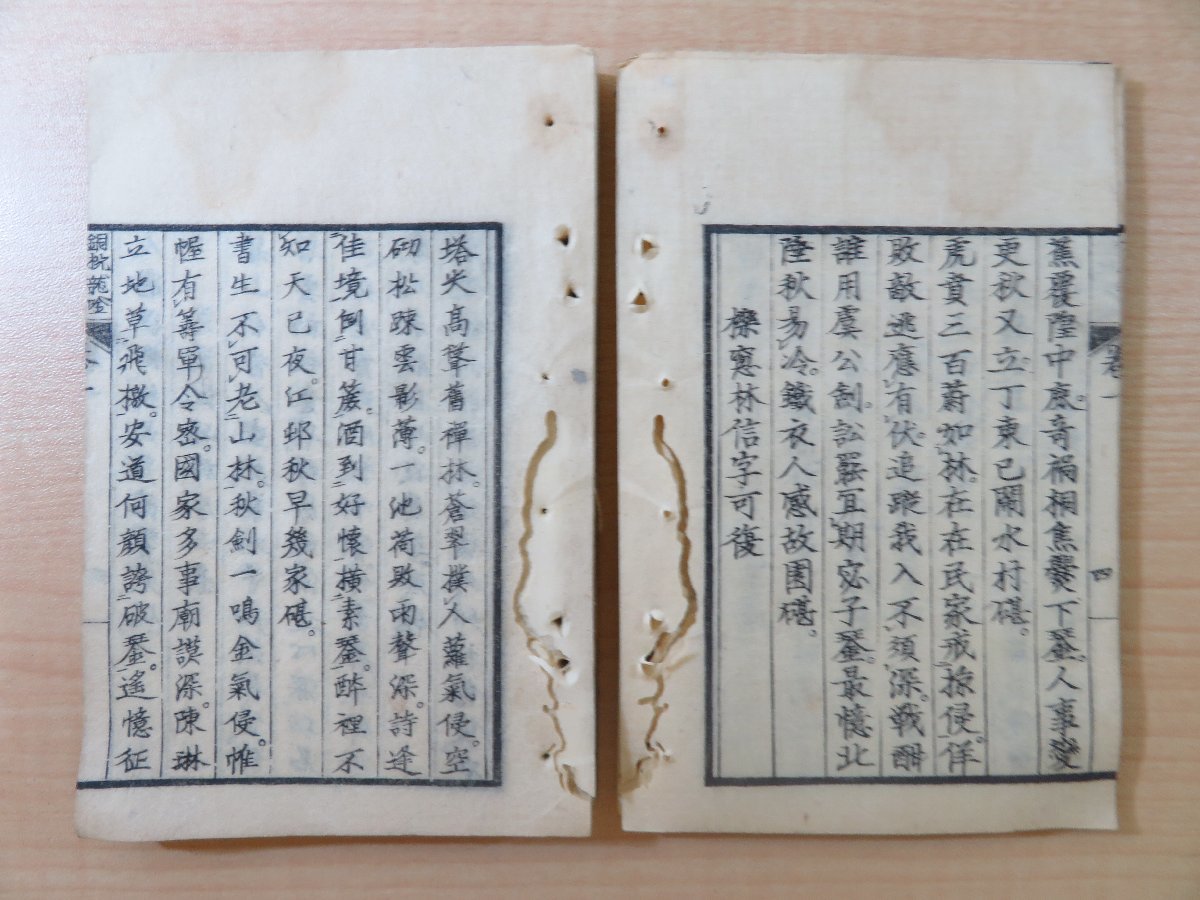 卷一
四
蕉覆隍中鹿。奇禍桐焦爨下琴。人事變
更秋又立。丁東已鬧水村碪。
虎賁三百蔚如林。在在民家戒掠侵。佯
敗敵逃應有伏。追蹤我入不須深。戰酣
誰用虞公刮。訟罷宜期宓子琴。最憶北
陸秋易冷。鐵衣人感故園碪。
櫟窓林信字可復
塔尖高聳舊禪林。蒼翠撲人蘿氣侵。空
砌松疎雲影薄。一池荷敗雨聲深。詩逢
佳境倒甘蔗。酒到好懷橫素琴。醉裡不
知天已夜。江邨秋早幾家碪。
書生不可老山林。秋劍一鳴金氣侵。帷
幄有籌軍令密。國家多事廟謨深。陳琳
立地草飛檄。安道何顏誇破琴。遙憶征
銅椀龍唫